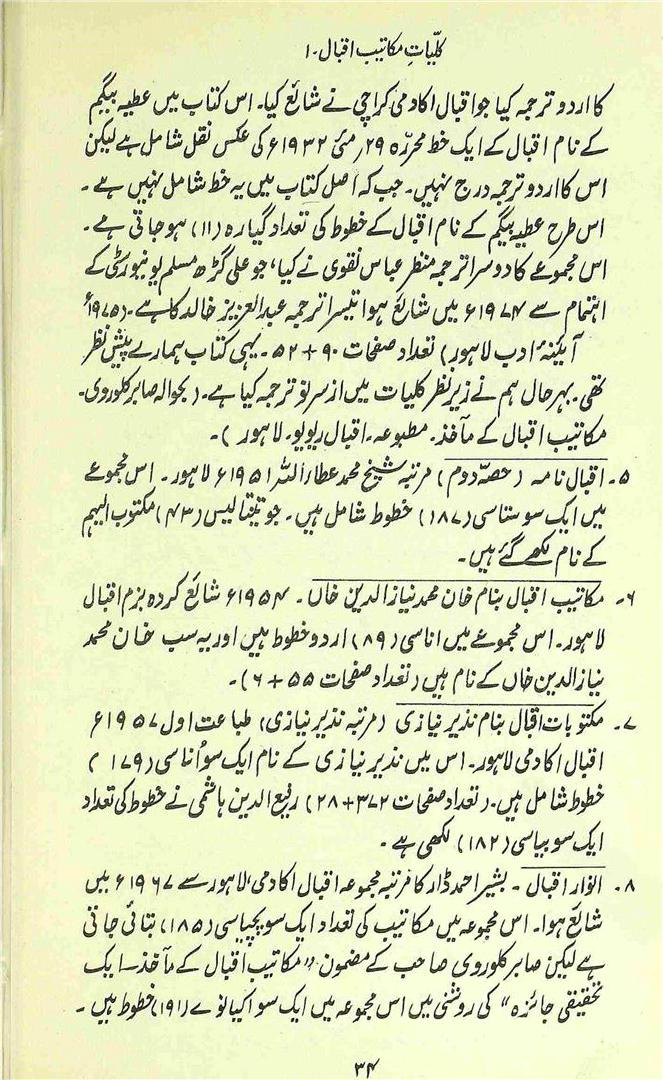 کلّیاتِ مکاتیب اقبال۔ ۱
کا اردو ترجمہ کیا جو اقبال اکادمی کراچی نے شائع کیا۔ اس کتاب میں عطیہ بیگم
کے نام اقبال کے ایک خط محررّہ ۲۹؍ مئی ۱۹۳۲ء کی عکس نقل شامل ہے لیکن
اس کا اردو ترجمہ درج نہیں۔ جب کہ اصل کتاب میں یہ خط شامل نہیں ہے۔
اس طرح عطیہ بیگم کے نام اقبال کے خطوط کی تعداد گیارہ (۱۱) ہو جاتی ہے۔
اس مجموعے کا دوسرا ترجمہ منظر عباس نقوی نے کیا، جو علی گڑھ مسلم یونیورسٹی کے
اہتمام سے ۱۹۷۴ء میں شائع ہوا تیسرا ترجمہ عبدالعزیز خالد کا ہے۔ (۱۹۷۵ء
آئینۂ ادب لاہور) تعداد صفحات ۹۰ + ۵۲۔ یہی کتاب ہمارے پیش نظر
تھی۔ بہر حال ہم نے زیر نظر کلیات میں از سر نو ترجمہ کیا ہے۔ (بحوالہ صابر کلوروی۔
مکاتیب اقبال کے مآخذ۔ مطبوعہ۔ اقبال ریویو۔ لاہور)۔
۵۔ اقبال نامہ (حصّہ دوم) مرتبہ شیخ محمد عطاء اللہ ۱۹۵۱ء لاہور۔ اس مجموعے
میں ایک سو ستاسی (۱۸۷) خطوط شامل ہیں۔ جو تینتالیس (۴۳) مکتوب الیہم
کے نام لکھے گئے ہیں۔
۶۔ مکاتیب اقبال بنام خان محمد نیاز الدین خاں۔ ۱۹۵۴ء شائع کردہ بزم اقبال
لاہور۔ اس مجموعے میں اناسی (۸۹) اردو خطوط ہیں اور یہ سب خان محمد
نیاز الدین خاں کے نام ہیں (تعداد صفحات ۵۵ + ۶)۔
۷۔ مکتوبات اقبال بنام نذیر نیازی (مرتبہ نذیر نیازی) طباعت اول ۱۹۵۷ء
اقبال اکادمی لاہور۔ اس میں نذیر نیازی کے نام ایک سو اُناسی (۱۷۹)
خطوط شامل ہیں۔ (تعداد صفحات ۳۷۲ + ۲۸) رفیع الدین ہاشمی نے خطوط کی تعداد
ایک سو بیاسی (۱۸۲) لکھی ہے۔
۸۔ انوار اقبال۔ بشیر احمد ڈار کا مرتبہ مجموعہ اقبال اکادمی، لاہور سے ۱۹۶۷ء میں
شائع ہوا۔ اس مجموعہ میں مکاتیب کی تعداد ایک سو پچیاسی (۱۸۵) بتائی جاتی
ہے لیکن صابر کلوروی صاحب کے مضمون "مکاتیب اقبال کے مآخذ۔ ایک
تحقیقی جائزہ" کی روشنی میں اس مجموعہ میں ایک سو اکیانوے (۱۹۱) خطوط ہیں۔
۳۴